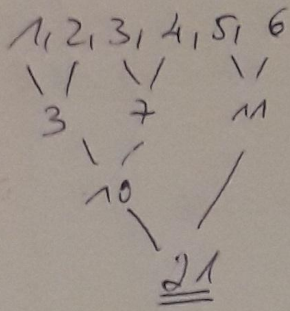 1, 2, 3, 4, 5, 6
3 7 11
10
21